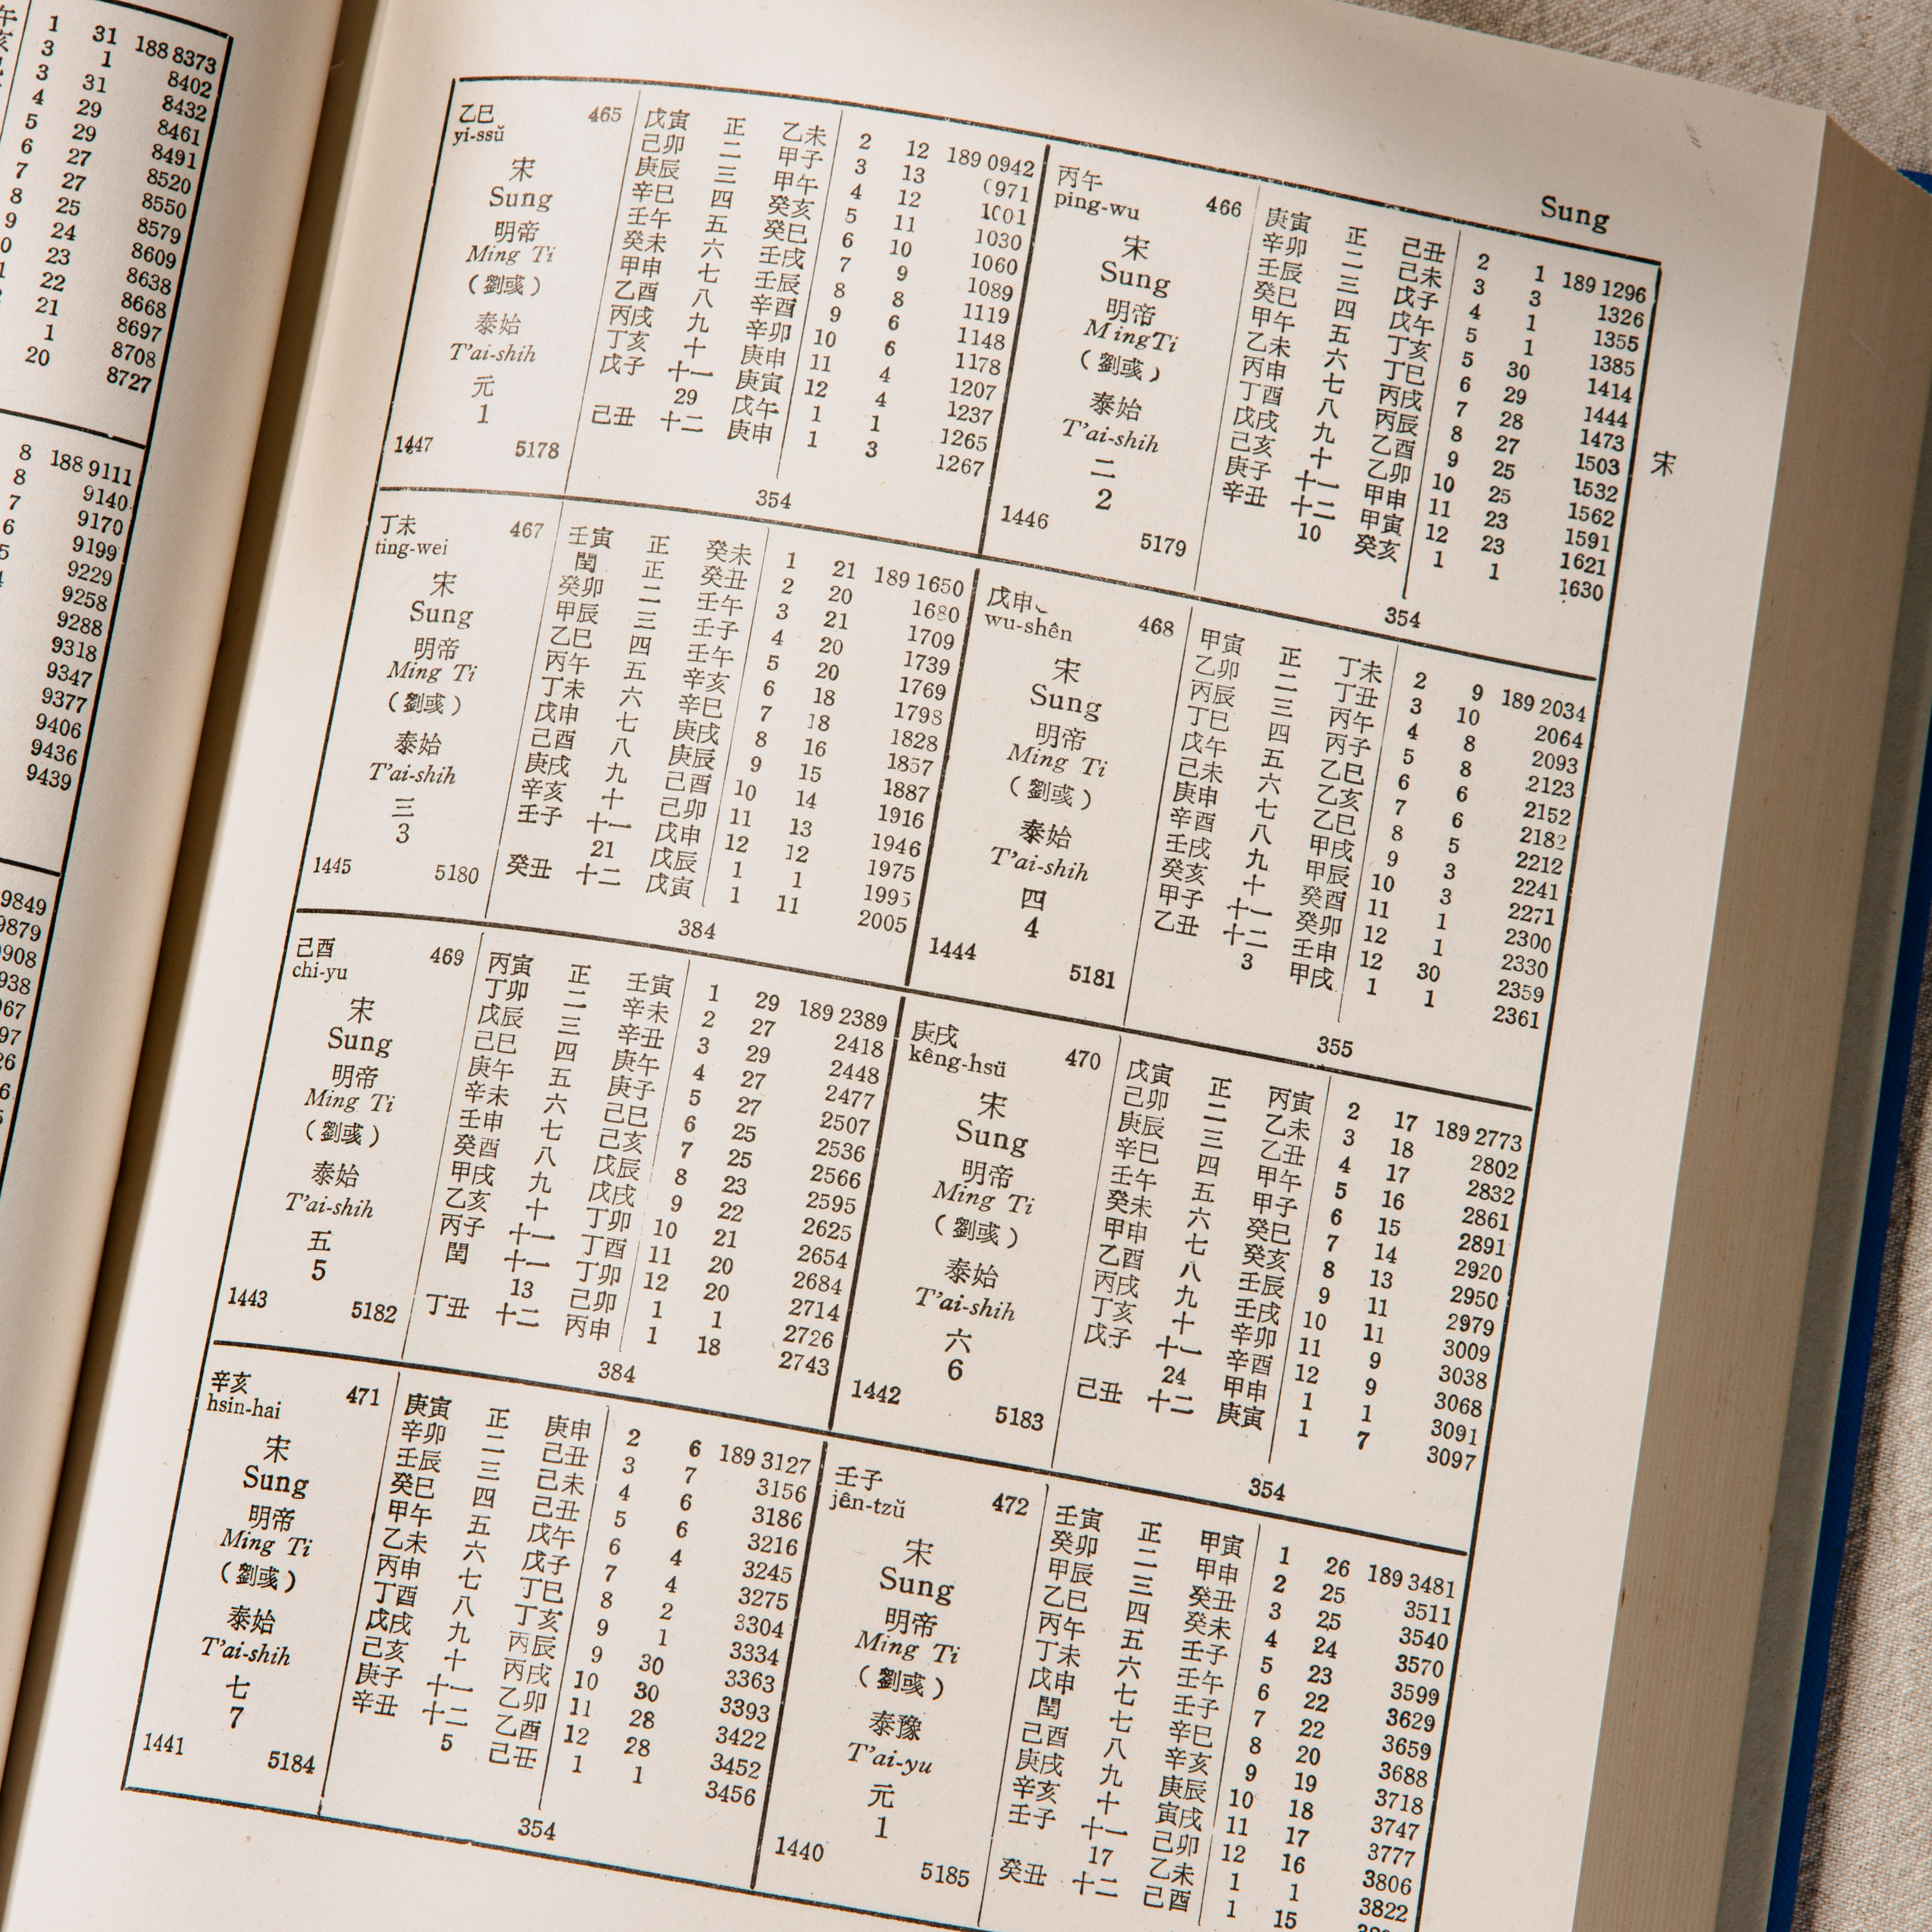 1 31 188 8373
3 1 8402
3 31 8432
4 29 8461
5 29 8491
6 27 8520
7 27 8550
8 25 8579
9 24 8609
0 23 8638
1 22 8668
21 8697
1 8708
20 8727
8 188 9111
8 9140
7 9170
6 9199
5 9229
9258
9288
9318
9347
9377
9406
9436
9439
9849
9879
9908
938
967
97
26
Sung
宋
乙巳 465
yi-ssŭ
宋
Sung
明帝
Ming Ti
(劉彧)
泰始
T'ai-shih
元
1
1447 5178
戊寅 正 乙未 2 12 189 0942
己卯 二 甲子 3 13 (971
庚辰 三 甲午 4 12 1001
辛巳 四 癸亥 5 11 1030
壬午 五 癸巳 6 10 1060
癸未 六 壬戌 7 9 1089
甲申 七 壬辰 8 8 1119
乙酉 八 辛酉 9 6 1148
丙戌 九 辛卯 10 6 1178
丁亥 十 庚申 11 4 1207
戊子 十一 庚寅 12 4 1237
29 戊午 1 1 1265
己丑 十二 庚申 1 3 1267
354
丙午 466
ping-wu
宋
Sung
明帝
Ming Ti
(劉彧)
泰始
T'ai-shih
二
2
1446 5179
庚寅 正 己丑 2 1 189 1296
辛卯 二 己未 3 3 1326
壬辰 三 戊子 4 1 1355
癸巳 四 戊午 5 1 1385
甲午 五 丁亥 5 30 1414
乙未 六 丁巳 6 29 1444
丙申 七 丙戌 7 28 1473
丁酉 八 丙辰 8 27 1503
戊戌 九 乙酉 9 25 1532
己亥 十 乙卯 10 25 1562
庚子 十一 甲申 11 23 1591
辛丑 十二 甲寅 12 23 1621
10 癸亥 1 1 1630
354
丁未 467
ting-wei
宋
Sung
明帝
Ming Ti
(劉彧)
泰始
T'ai-shih
三
3
1445 5180
壬寅 正 癸未 1 21 189 1650
閏 正 癸丑 2 20 1680
癸卯 二 壬午 3 21 1709
甲辰 三 壬子 4 20 1739
乙巳 四 壬午 5 20 1769
丙午 五 辛亥 6 18 1798
丁未 六 辛巳 7 18 1828
戊申 七 庚戌 8 16 1857
己酉 八 庚辰 9 15 1887
庚戌 九 己酉 10 14 1916
辛亥 十 己卯 11 13 1946
壬子 十一 戊申 12 12 1975
21 戊辰 1 1 1995
癸丑 十二 戊寅 1 11 2005
384
戊申 468
wu-shên
宋
Sung
明帝
Ming Ti
(劉彧)
泰始
T'ai-shih
四
4
1444 5181
甲寅 正 丁未 2 9 189 2034
乙卯 二 丁丑 3 10 2064
丙辰 三 丙午 4 8 2093
丁巳 四 丙子 5 8 2123
戊午 五 乙巳 6 6 2152
己未 六 乙亥 7 6 2182
庚申 七 乙巳 8 5 2212
辛酉 八 甲戌 9 3 2241
壬戌 九 甲辰 10 3 2271
癸亥 十 癸酉 11 1 2300
甲子 十一 癸卯 12 1 2330
乙丑 十二 壬申 12 30 2359
3 甲戌 1 1 2361
355
己酉 469
chi-yu
宋
Sung
明帝
Ming Ti
(劉彧)
泰始
T'ai-shih
五
5
1443 5182
丙寅 正 壬寅 1 29 189 2389
丁卯 二 辛未 2 27 2418
戊辰 三 辛丑 3 29 2448
己巳 四 庚午 4 27 2477
庚午 五 庚子 5 27 2507
辛未 六 己巳 6 25 2536
壬申 七 己亥 7 25 2566
癸酉 八 戊辰 8 23 2595
甲戌 九 戊戌 9 22 2625
乙亥 十 丁卯 10 21 2654
丙子 十一 丁酉 11 20 2684
閏 十一 丁卯 12 20 2714
13 己卯 1 1 2726
丁丑 十二 丙申 1 18 2743
384
庚戌 470
kêng-hsü
宋
Sung
明帝
Ming Ti
(劉彧)
泰始
T'ai-shih
六
6
1442 5183
戊寅 正 丙寅 2 17 189 2773
己卯 二 乙未 3 18 2802
庚辰 三 乙丑 4 17 2832
辛巳 四 甲午 5 16 2861
壬午 五 甲子 6 15 2891
癸未 六 癸巳 7 14 2920
甲申 七 癸亥 8 13 2950
乙酉 八 壬辰 9 11 2979
丙戌 九 壬戌 10 11 3009
丁亥 十 辛卯 11 9 3038
戊子 十一 辛酉 12 9 3068
24 甲申 1 1 3091
己丑 十二 庚寅 1 7 3097
354
辛亥 471
hsin-hai
宋
Sung
明帝
Ming Ti
(劉彧)
泰始
T'ai-shih
七
7
1441 5184
庚寅 正 庚申 2 6 189 3127
辛卯 二 己丑 3 7 3156
壬辰 三 己未 4 6 3186
癸巳 四 己丑 5 6 3216
甲午 五 戊午 6 4 3245
乙未 六 戊子 7 4 3275
丙申 七 丁巳 8 2 3304
丁酉 八 丁亥 9 1 3334
戊戌 九 丙辰 9 30 3363
己亥 十 丙戌 10 30 3393
庚子 十一 乙卯 11 28 3422
辛丑 十二 乙酉 12 28 3452
5 己丑 1 1 3456
354
壬子 472
jên-tzŭ
宋
Sung
明帝
Ming Ti
(劉彧)
泰豫
T'ai-yu
元
1
1440 5185
壬寅 正 甲寅 1 26 189 3481
癸卯 二 甲申 2 25 3511
甲辰 三 癸丑 3 25 3540
乙巳 四 癸未 4 24 3570
丙午 五 壬子 5 23 3599
丁未 六 壬午 6 22 3629
戊申 七 壬子 7 22 3659
閏 七 辛巳 8 20 3688
己酉 八 辛亥 9 19 3718
庚戌 九 庚辰 10 18 3747
辛亥 十 寅戌 11 17 3777
壬子 十一 己卯 12 16 3806
17 乙未 1 1 3822
癸丑 十二 己酉 1 15